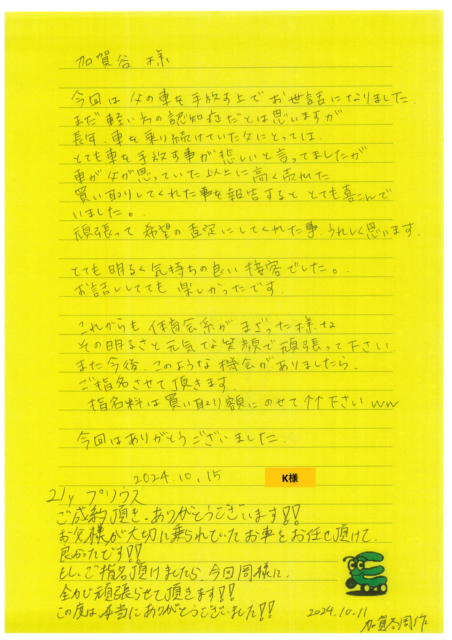 加賀谷 様
今回は父の車を手放す上でお世話になりました。
まだ軽い方の認知症だとは思いますが
長年、車を乗り続けていた父にとっては、
とても車を手放す事が悲しいと言ってましたが
車が父が思っていた以上に高く売れた
買い取りしてくれた事を報告すると とても喜こんで
いました。
頑張って 希望の査定にしてくれた事 うれしく思います。
とても明るく気持ちの良い接客でした。
お話ししてても 楽しかったです。
これからも 体育会系がまざった様な
その明るさと元気な笑顔で頑張って下さい
また今後、このような機会がありましたら、
ご指名させて頂きます
指名料は買い取り額に のせて↑↑下さい ww
今回はありがとうございました。
2024.10.15
K様
21y プリウス
ご成約頂き、ありがとうございます!!
お父様が大切に乗られていたお車をお任せ頂けて、
良かったです!!
もし、ご指名頂けましたら、今回同様に、
全力で頑張らせて頂きます!!
この度は本当にありがとうございました!!
2024.10.11
加賀谷周作